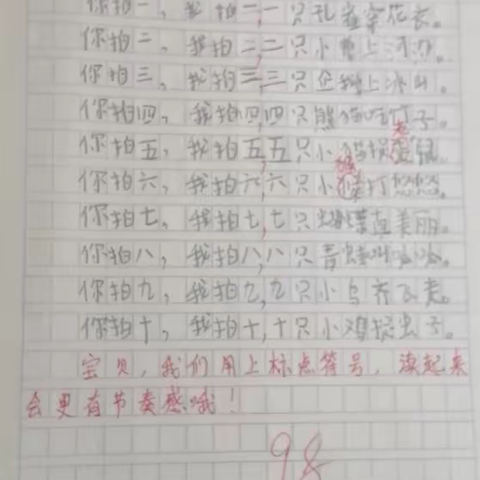 你拍一，我拍一，一只孔雀穿花衣。
你拍二，我拍二，二只小
你拍三，我拍三，三只企鹅上冰山。
你拍四，我拍四，四只熊猫吃竹子。
你拍五，我拍五，五只小猫捉老鼠。
你拍六，我拍六，六只小
你拍七，我拍七，七只蝴蝶真美丽。
你拍八，我拍八，八只青蛙叫呱呱。
你拍九，我拍九，九只小鸟齐飞走。
你拍十，我拍十，十只小鸡捉虫子。
宝贝，我们用上标点符号，读起来
会更有节奏感哦！
98